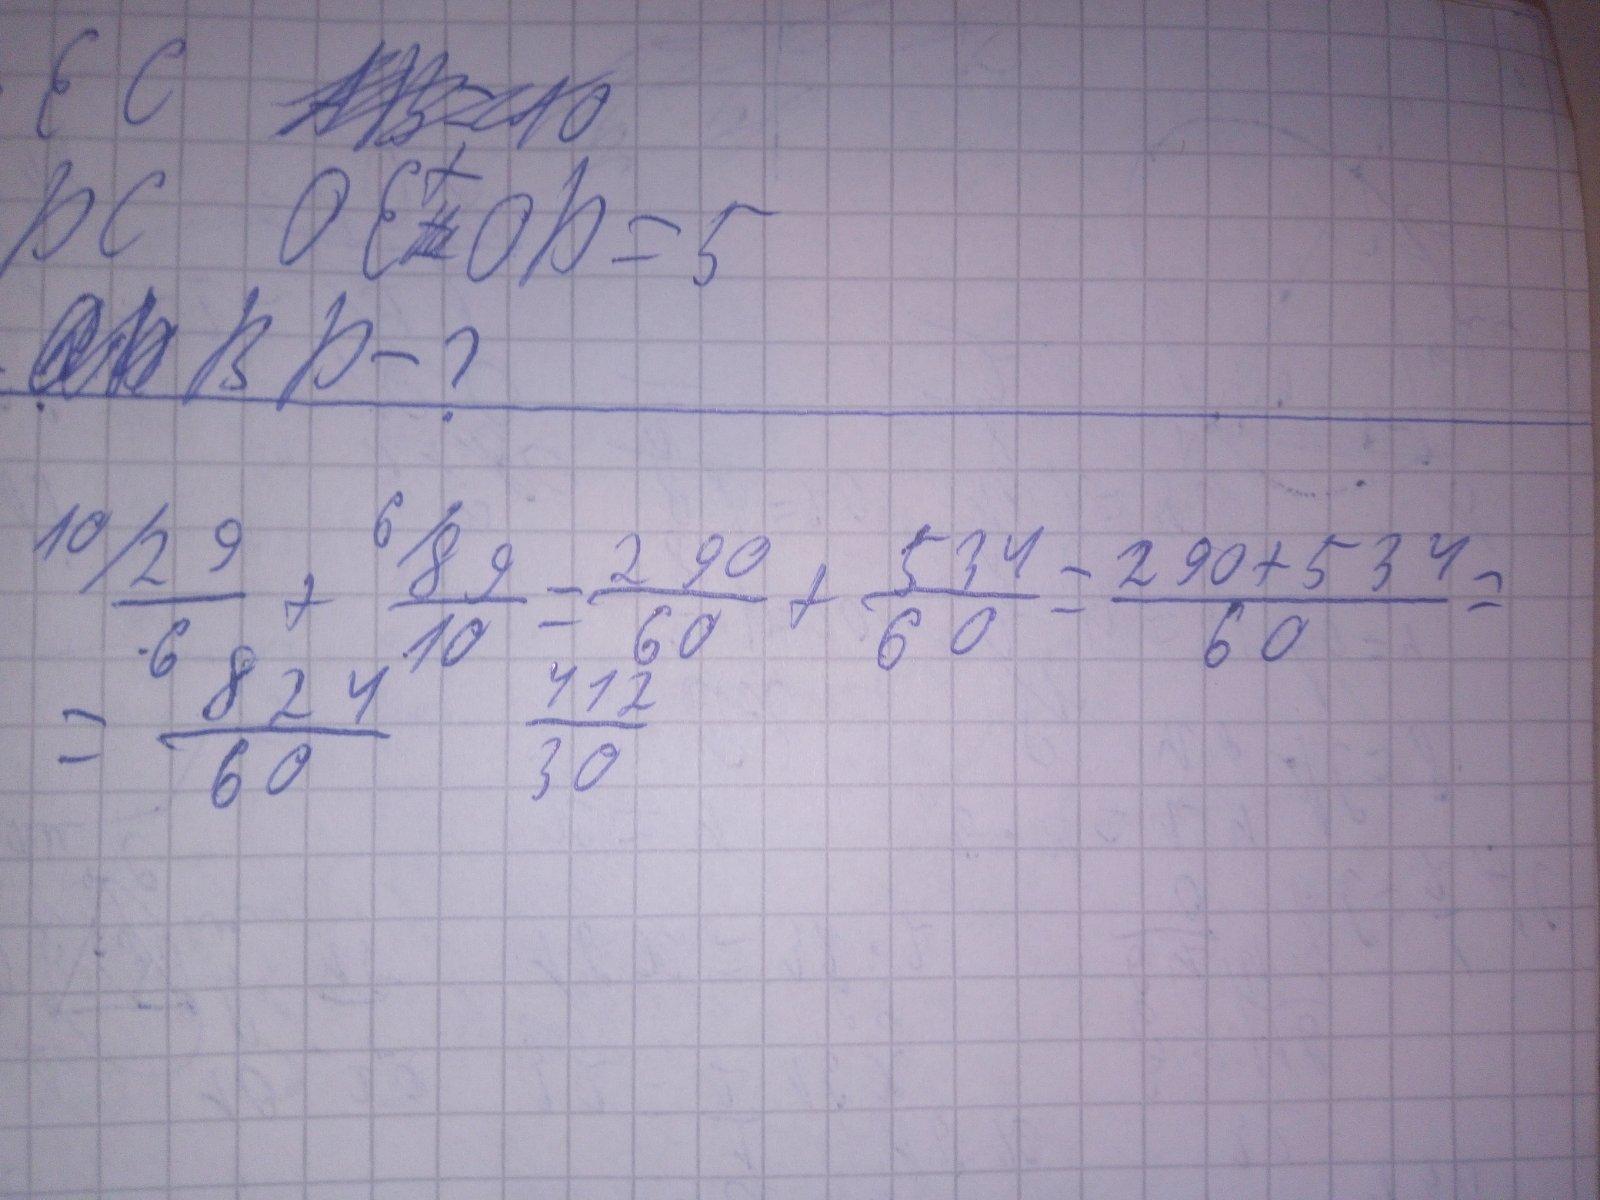 EC
DC OE+OD=5
BD-?
10/29/6 + 6/89/10 = 290/60 + 534/60 = 290+534/60 =
= 824/60 412/30